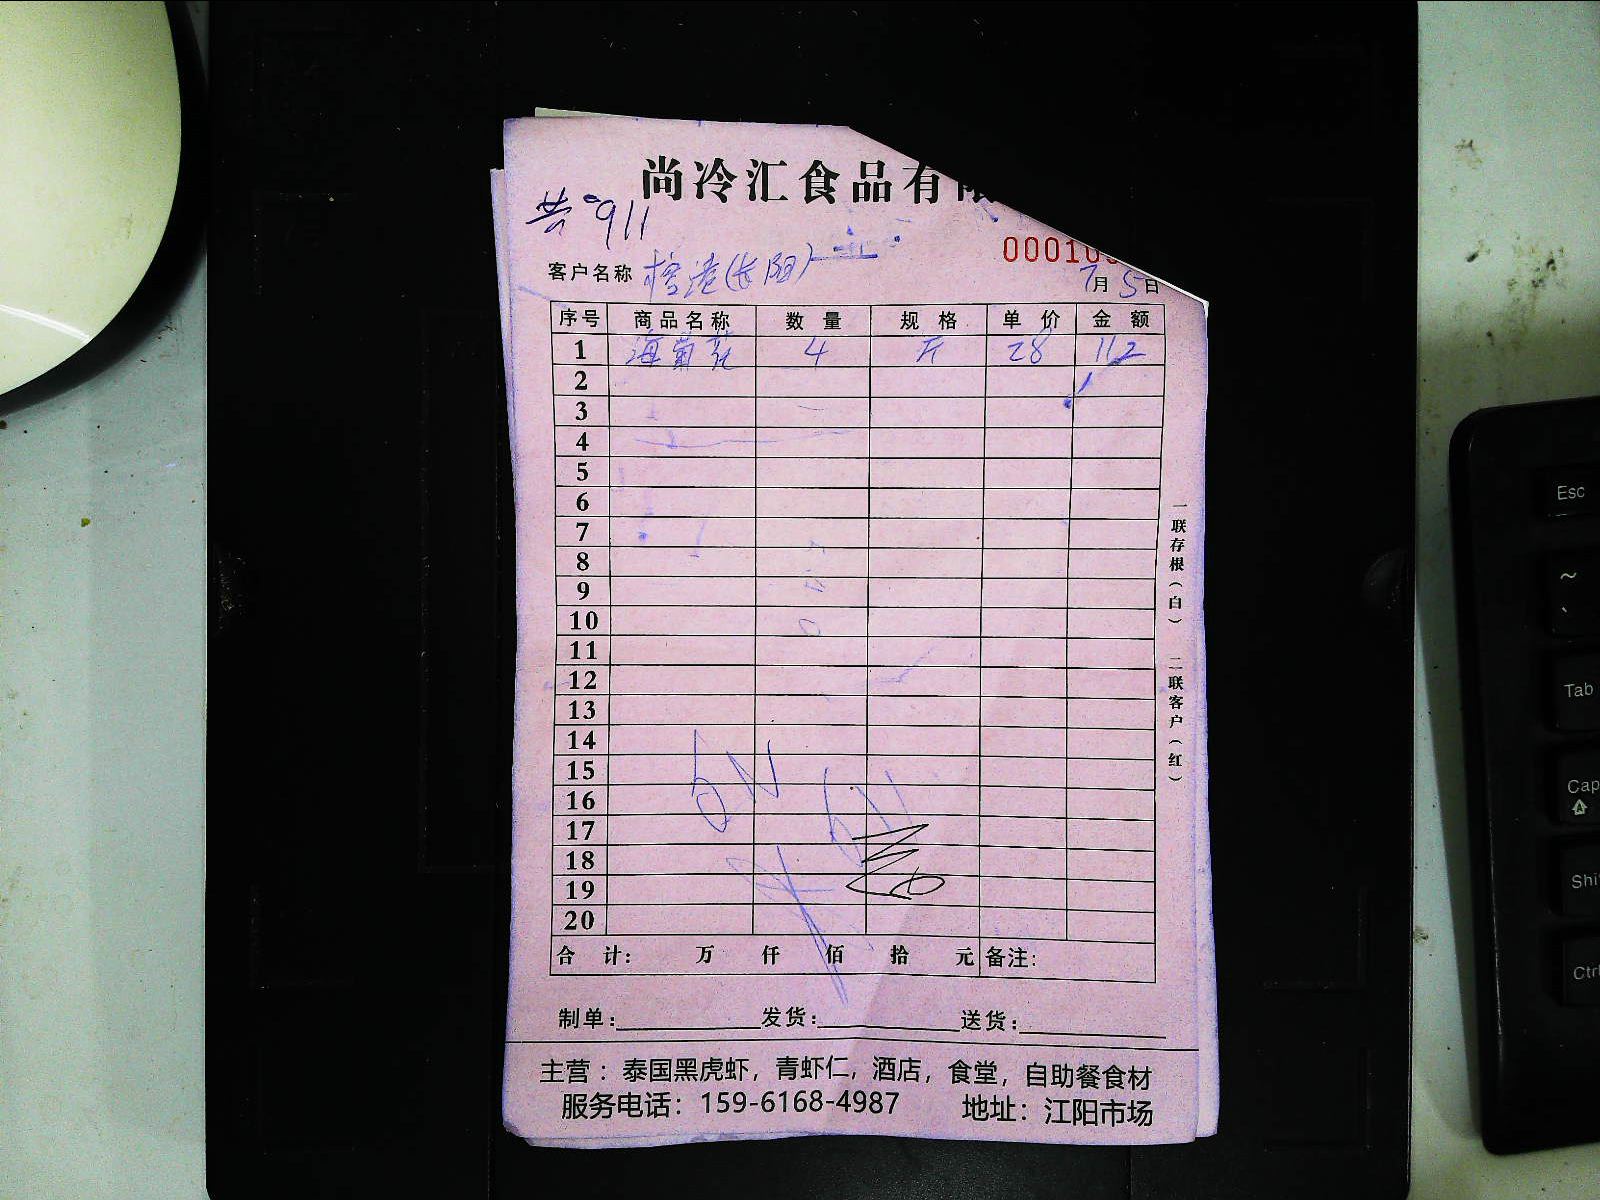 尚冷汇食品有限
共:911
00010
客户名称 (长阳) 7月5日
序号 商品名称 数量 规格 单价 金额
1 海葡萄 4 斤 28 112
2
3
4
5
6
7
8
9
10
11
12
13
14
15
16
17
18
19
20
合 计: 万 仟 佰 拾 元 备注:
制单: 发货: 送货:
主营：泰国黑虎虾，青虾仁，酒店，食堂，自助餐食材
服务电话：159-6168-4987 地址：江阳市场
一联存根（白） 二联客户（红）
Esc
~
`
Tab
Cap
Shi
Ctrl